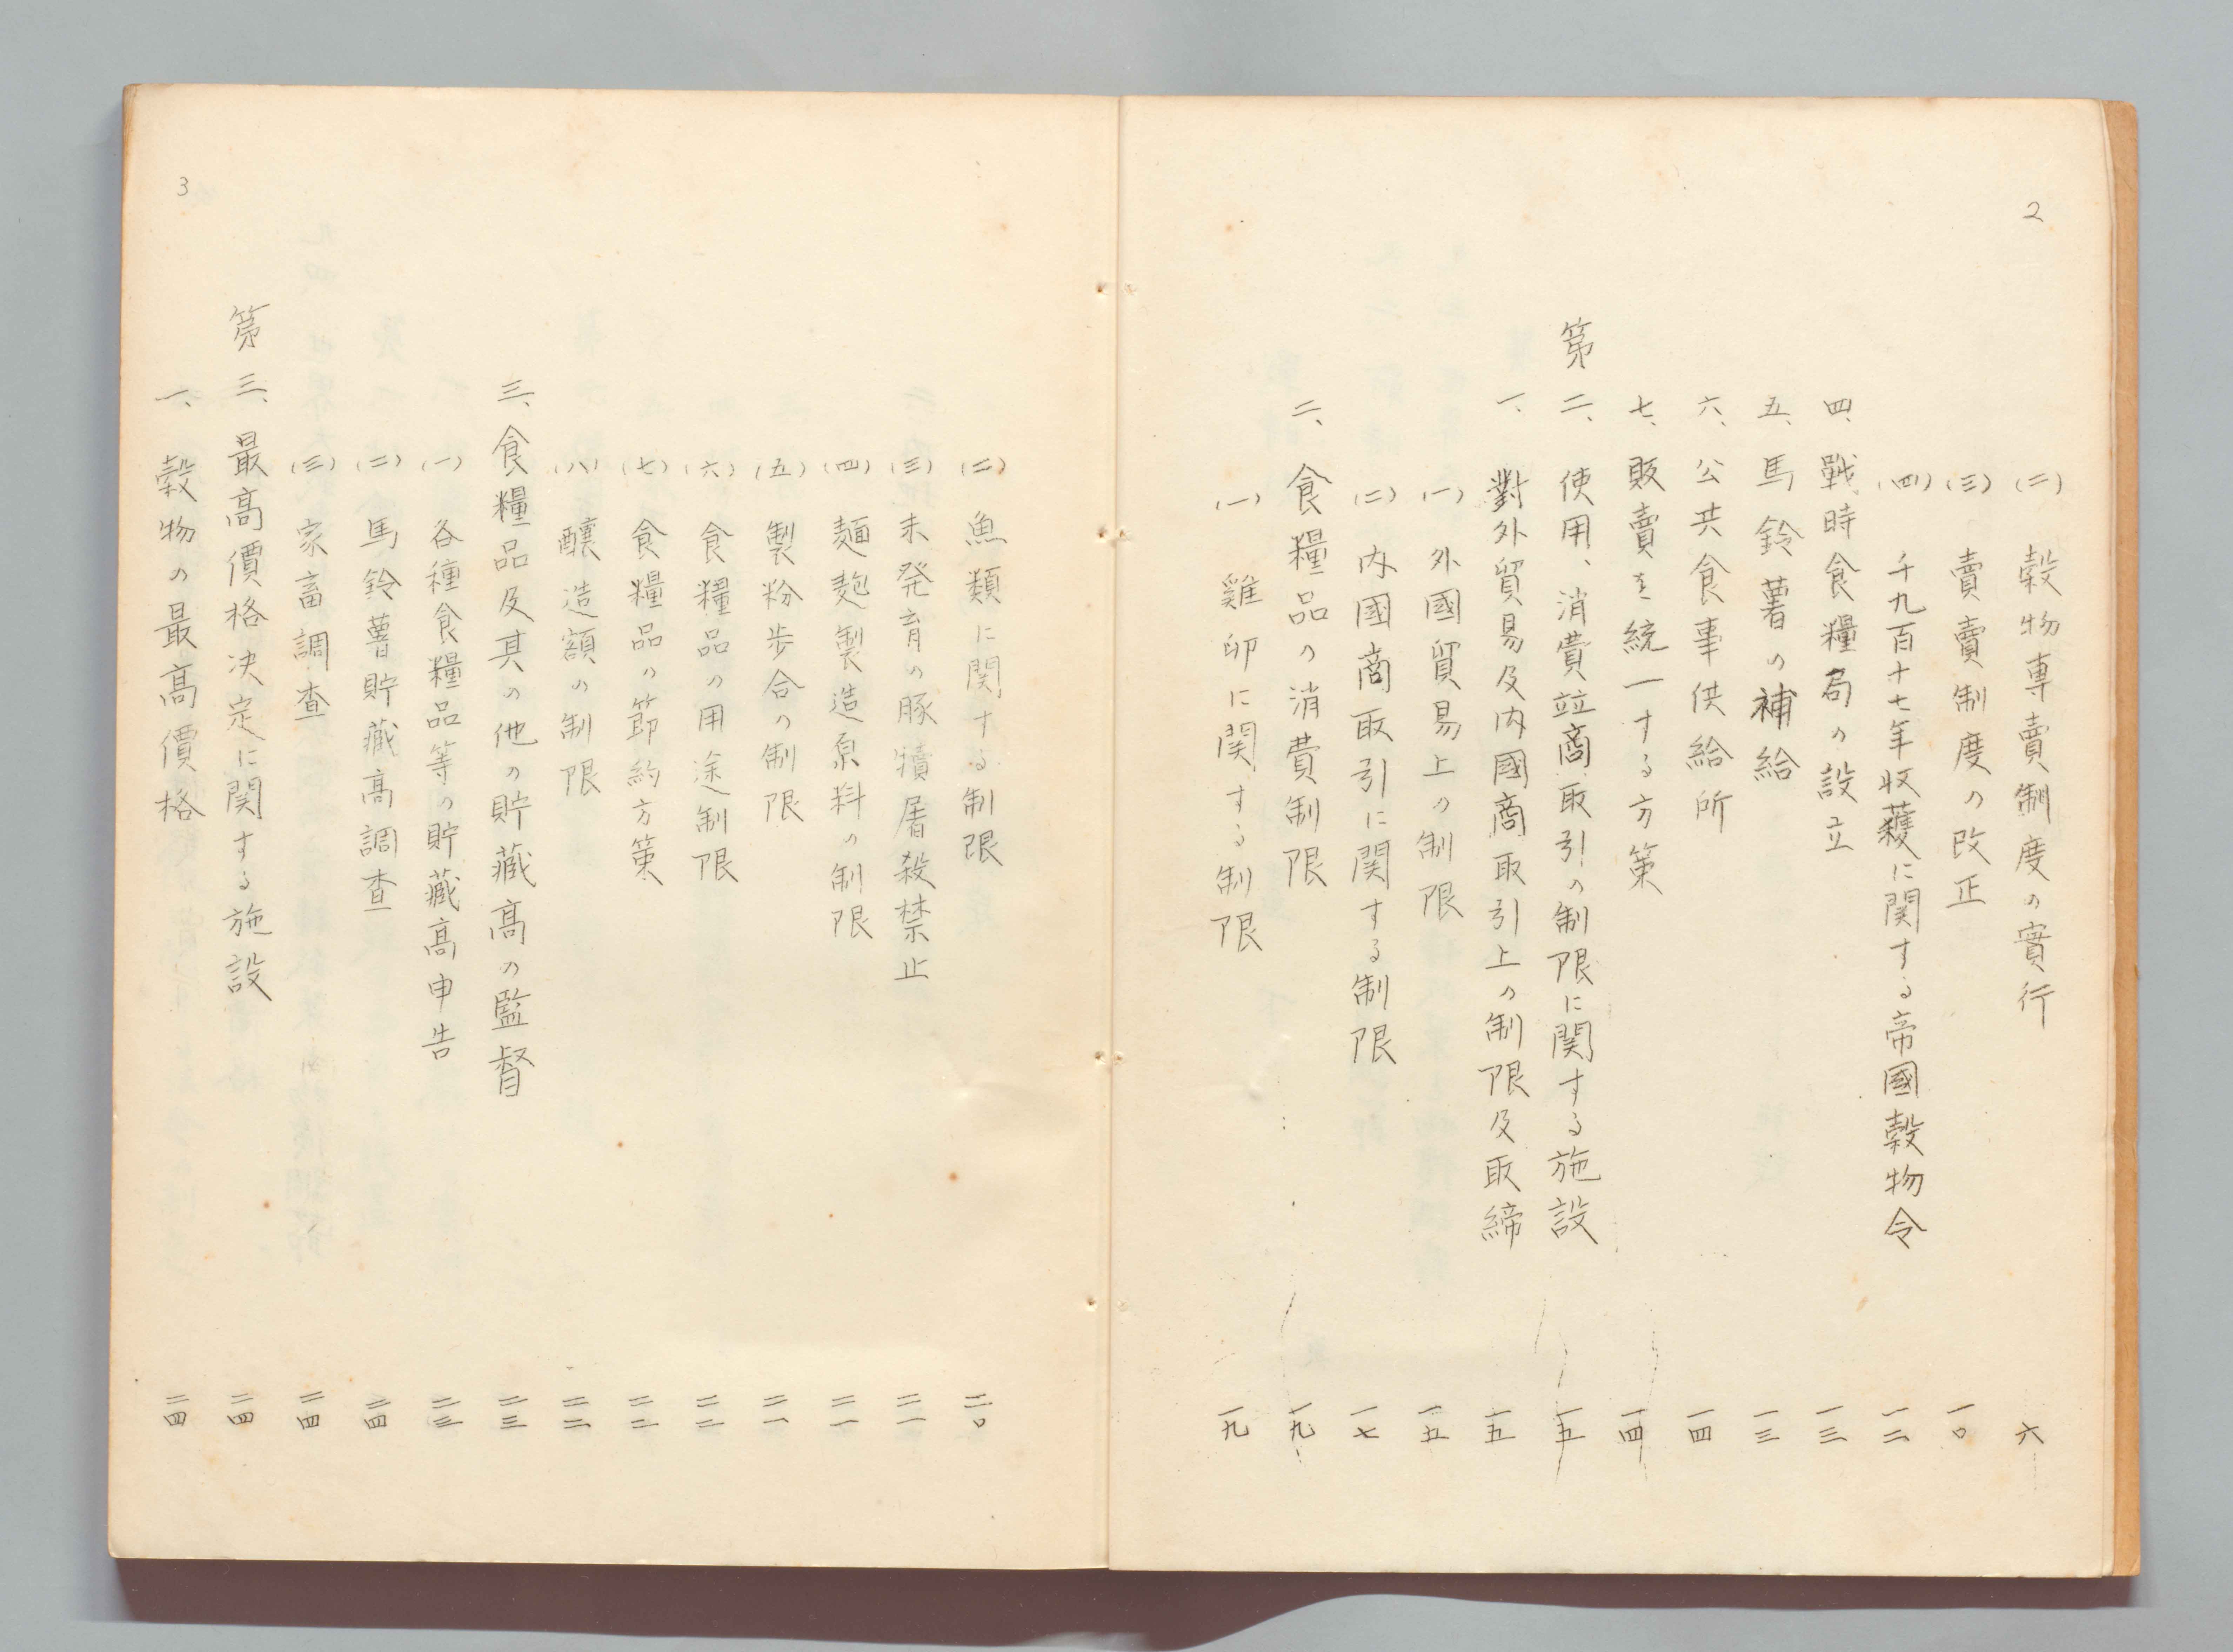 2
(二) 穀物専賣制度の實行 六
(三) 賣賣制度の改正 一〇
(四) 千九百十七年収穫に関する帝國穀物令 一二
四、戰時食糧局の設立 一三
五、馬鈴薯の補給 一三
六、公共食事供給所 一四
七、販賣を統一する方策 一四
第二、使用、消費竝商取引の制限に関する施設 一五
一、對外貿易及内國商取引上の制限及取締 一五
(一) 外國貿易上の制限 一五
(二) 内國商取引に関する制限 一七
二、食糧品の消費制限 一九
(一) 雞卵に関する制限 一九
3
(二) 魚類に関する制限 二〇
(三) 未発育の豚犢屠殺禁止 二一
(四) 麺麭製造原料の制限 二一
(五) 製粉歩合の制限 二一
(六) 食糧品の用途制限 二二
(七) 食糧品の節約方策 二二
(八) 醸造額の制限 二二
三、食糧品及其の他の貯藏高の監督 二三
(一) 各種食糧品等の貯藏高申告 二三
(二) 馬鈴薯貯藏高調査 二四
(三) 家畜調査 二四
第三、最高價格決定に関する施設 二四
一、穀物の最高價格 二四